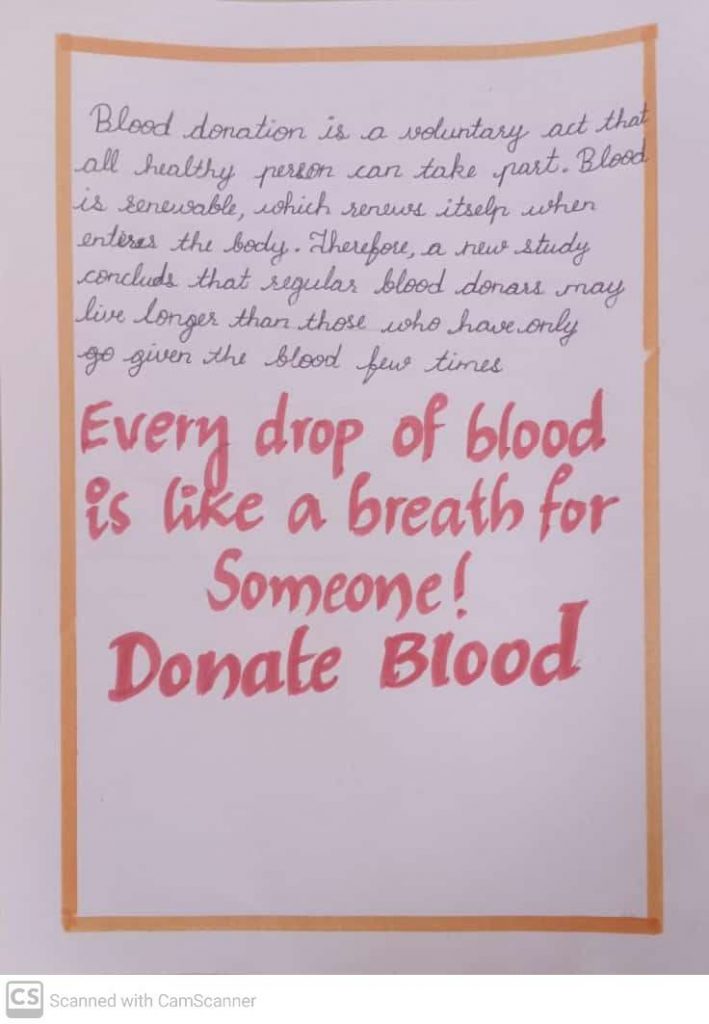 Blood donation is a voluntary act that
all healthy person can take part. Blood
is renewable, which renews itself when
enteres the body. Therefore, a new study
concluds that regular blood donars may
live longer than those who have only
go given the blood few times
Every drop of blood
is like a breath for
Someone!
Donate Blood
CS Scanned with CamScanner